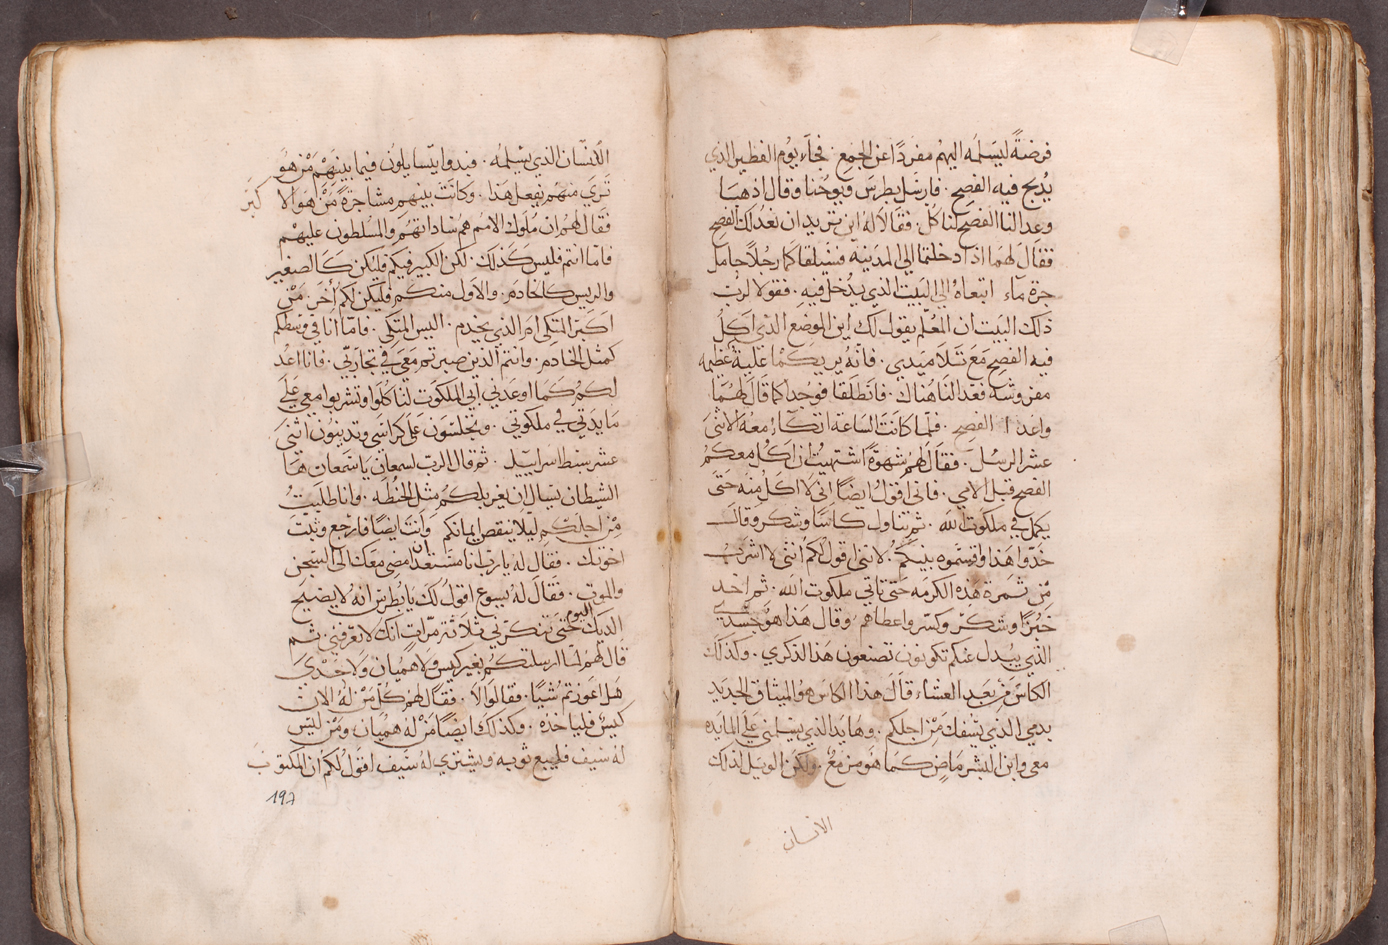 فرصةً ليسلمه اليهم مفردًا عن الجمع . فجاء يوم الفطير الذي
يُذبح فيه الفصح . فارسَل بطرسَ ويوحنا وقال اذهبا
وعدا لنا الفصح لناكل . فقالا له اين تريد ان نعد لك الفصح
فقال لهما اذا دخلتما الي المدينه فسيلقاكما رجلاً حامل
جرة ماء اتبعاه الي البيت الذي يدخل فيه . فقولا لرب
ذلك البيت ان المعلم يقول لك اين الموضع الذي اكل
فيه الفصح مع تلاميذي . فانه يريكما علية عظيمه
مفروشة فعدا لنا هناك . فانطلقا فوجدا كما قال لهما
واعدا الفصح . فلما كانت الساعه اتكا ومعه الاثنى
عشر الرسل . فقال لهم شهوةً اشتهيت ان اكل معكم
الفصح قبل الامي . فاني اقول ايضًا اني لا اكل منه حتى
يكمل في ملكوت الله . ثم تناول كاسًا وشكر وقال
خذوا هذا واقسموه بينكم . لانني اقول لكم انني لا اشرب
من ثمرة هذه الكرمه حتى تاتي ملكوت الله . ثم اخد
خبزًا وشكر وكسر واعطاهم وقال هذا هو جسدي
الذي يبدل عنكم تكونون تصنعون هذا لذكري . وكذلك
الكاسَ من بعد العشاء قال هذا الكاس هو الميثاق الجديد
بدمي الذي يسفك من اجلكم . وها يد الذي يسلمني علي المايده
معي وابن البشر ماضٍ كما هو مزمع . ولكن الويل لذلك
الانسان
الانسان الذي يسلمه . فبدوا يتسايلون فيما بينهم من هو
تري منهم يفعل هذا . وكانت بينهم مشاجرة من هو الا كبر
فقال لهم ان ملوك الامم هم ساداتهم والمسلطون عليهم
فاما انتم فليس كذلك . لكن الكبير فيكم فليكن كالصغير
والريس كالخادم . والاول منكم فليكن لكم اخر من
اكبر المتكي ام الذي يخدم . اليس المتكي . فاما انا في وسطكم
كمثل الخادم . وانتم الذين صبرتم معي في تجاربي . فانا اعد
لكم كما اوعدني ابي الملكوت لتاكلوا وتشربوا معي علي
مايدتي في ملكوتي . وتجلسون علي كراسي وتدينون اثني
عشر سبط اسراييل . ثم قال الرب لسمعان يا سمعان ها
الشيطان يسال ان يغربلكم مثل الحنطه . وانا طلبت
من اجلكم ليلا ينقص ايمانكم وانت ايضًا فارجع وثبت
اخوتك . فقال له يا رب انا مستعد ان امضي معك الي السجن
والموت . فقال له يسوع اقول لك يا بطرس انه لا يصيح
الديك اليوم حتي تنكرني ثلاثة مرات انك لا تعرفني . ثم
قال لهم لما ارسلتكم بغير كيس ولا هميان ولا حذي
هل اعوزتم شيًا . فقالوا لا . فقال لهم كل من له الان
كيس فلياخذه . وكذلك ايضًا من له هميان ومن ليس
له سيف فليبيع ثوبه ويشتري له سيف اقول لكم ان المكتوب
197